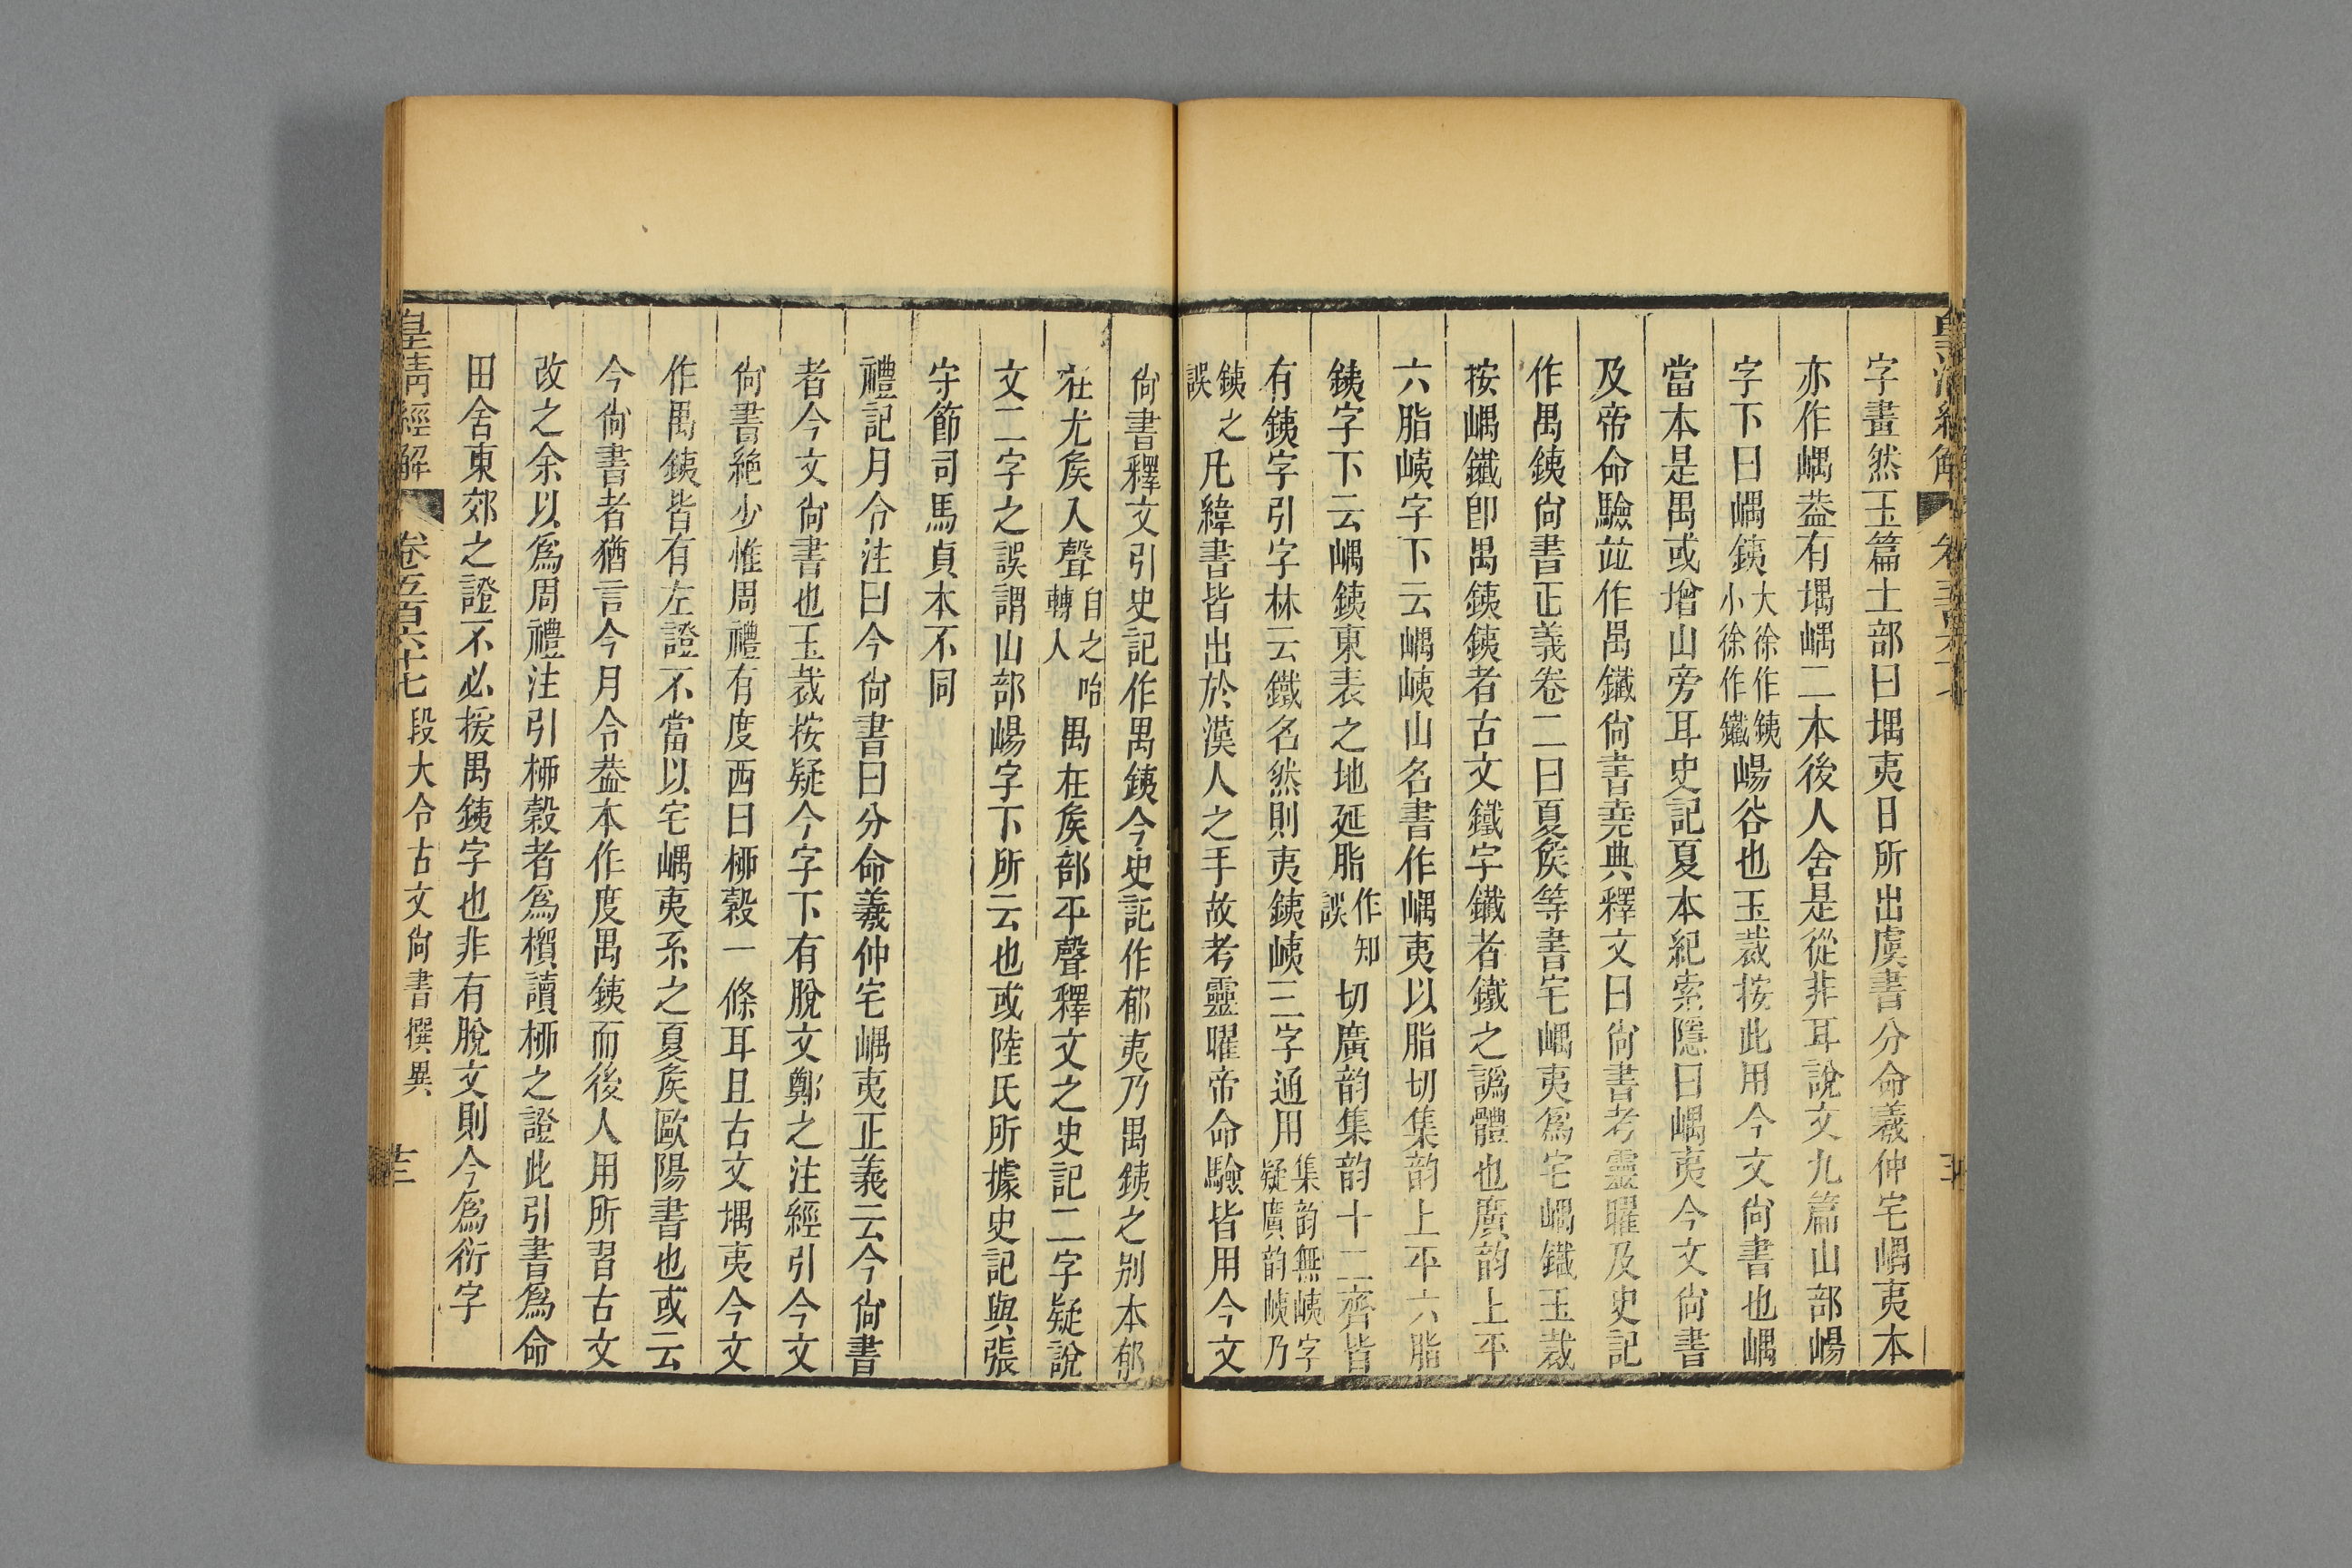 字畫然玉篇土部曰堣夷日所出虞書分命羲仲宅嵎夷本
亦作嵎葢有堣嵎二本後人舍是從非耳說文九篇山部崵
字下曰嵎銕大徐作銕小徐作鐵崵谷也玉裁按此用今文尙書也嵎
當本是禺或增山旁耳史記夏本紀索隱曰嵎夷今文尙書
及帝命驗竝作禺鐵尙書堯典釋文曰尙書考靈曜及史記
作禺銕尙書正義卷二曰夏矦等書宅嵎夷爲宅嵎鐵玉裁
按嵎鐵卽禺銕銕者古文鐵字鐵者鐵之譌體也廣韵上平
六脂峓字下云嵎峓山名書作嵎夷以脂切集韵上平六脂
銕字下云嵎銕東表之地延脂作知誤切廣韵集韵十二齊皆
有銕字引字林云鐵名然則夷銕峓三字通用集韵無峓字疑廣韵峓乃
銕之誤凡緯書皆出於漢人之手故考靈曜帝命驗皆用今文
尙書釋文引史記作禺銕今史記作郁夷乃禺銕之别本郁
在尤矦入聲自之咍轉人禺在矦部平聲釋文之史記二字疑說
文二字之誤謂山部崵字下所云也或陸氏所據史記與張
守節司馬貞本不同
禮記月令注曰今尙書曰分命羲仲宅嵎夷正義云今尙書
者今文尙書也玉裁按疑今字下有脫文鄭之注經引今文
尙書絶少惟周禮有度西曰柳穀一條耳且古文堣夷今文
作禺銕皆有左證不當以宅嵎夷系之夏矦歐陽書也或云
今尙書者猶言今月令葢本作度禺銕而後人用所習古文
改之余以爲周禮注引柳穀者爲檟讀柳之證此引書爲命
田舍東郊之證不必援禺銕字也非有脫文則今爲衍字
皇清經解 卷五百六十七 段大令古文尙書撰異 十三